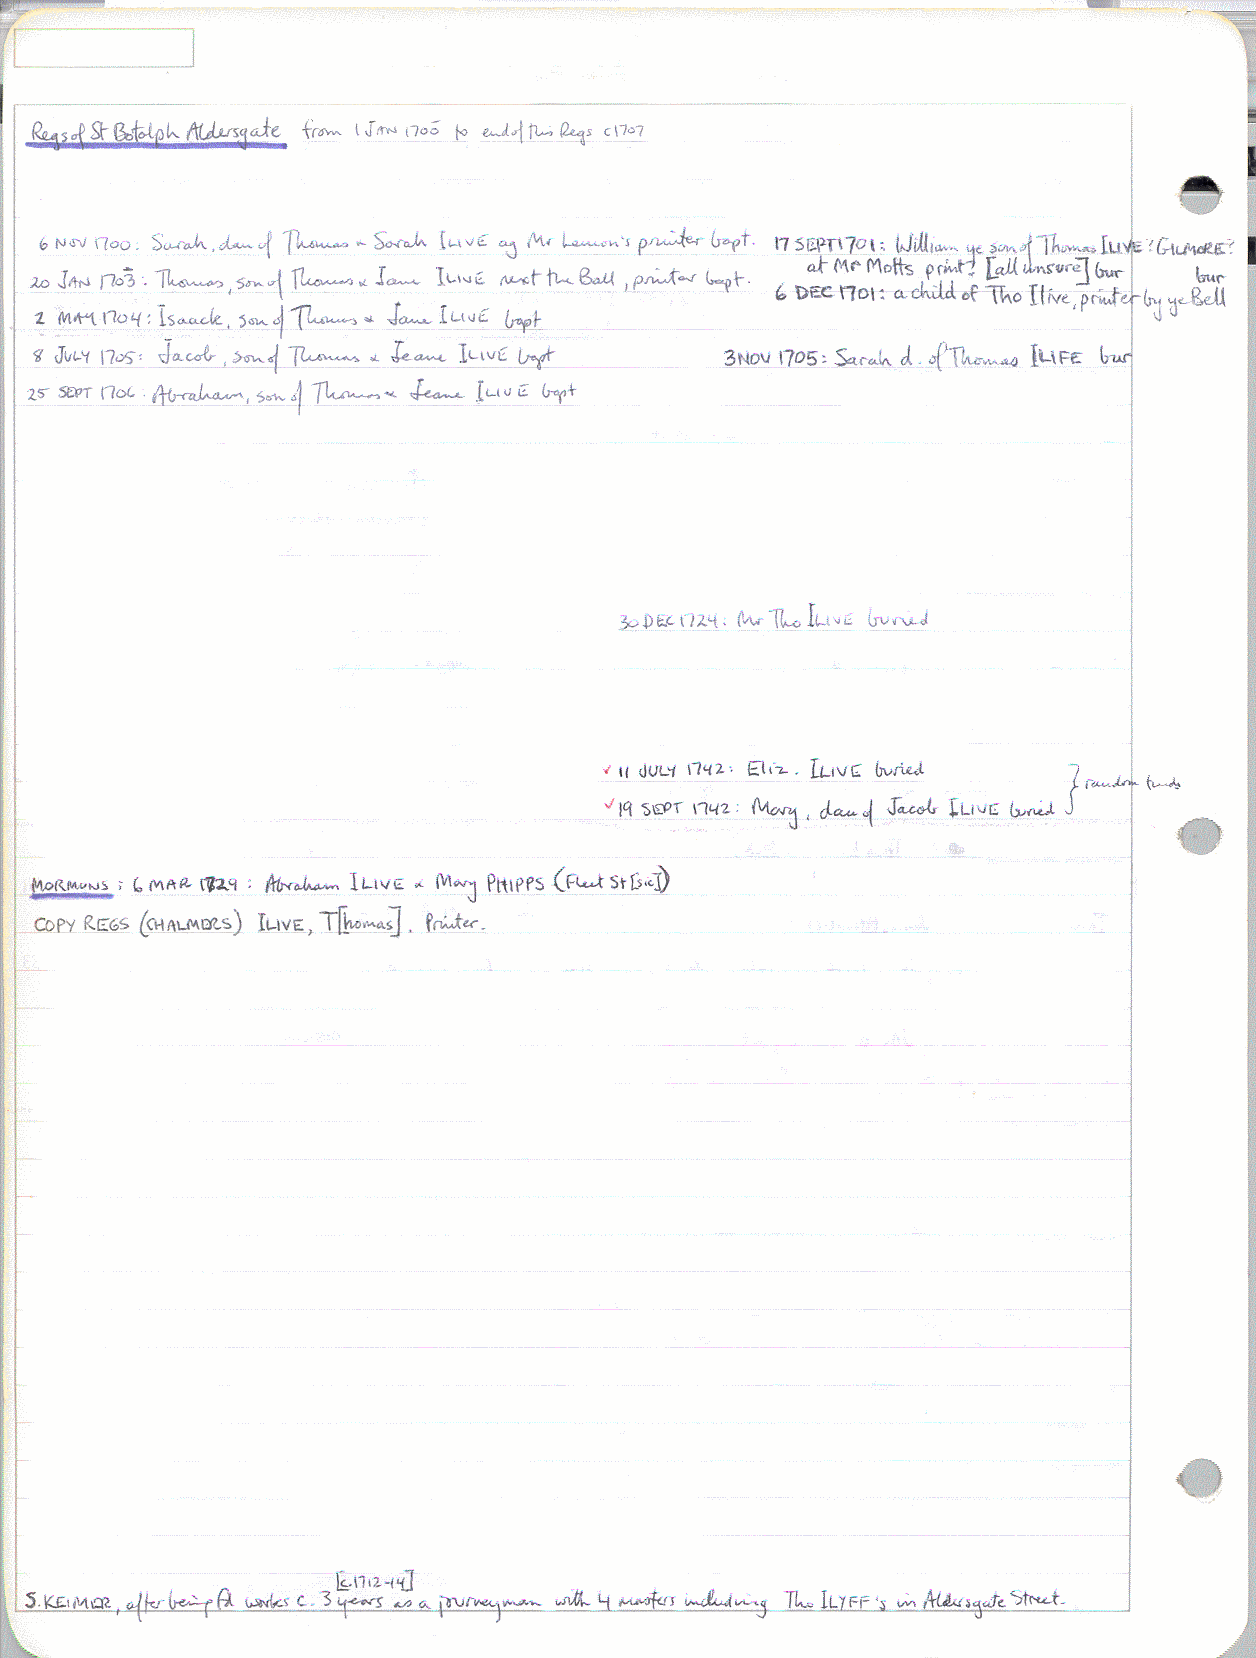 Regs of St Botolph Aldersgate from 1 JAN 1700 to end of this Regs c1707
6 NOV 1700: Sarah, dau of Thomas & Sarah ILIVE ag Mr Lemon's printer bapt.
17 SEPT 1701: William ye son of Thomas ILIVE? GILMORE?
at Mr Motts print? [all unsure] bur
20 JAN 1703: Thomas, son of Thomas & Jane ILIVE next the Ball, printer bapt.
bur
6 DEC 1701: a child of Tho Ilive, printer by ye Bell
2 MAY 1704: Isaack, son of Thomas & Jane ILIVE bapt
8 JULY 1705: Jacob, son of Thomas & Jeane ILIVE bapt
3 NOV 1705: Sarah d. of Thomas ILIFE bur
25 SEPT 1706: Abraham, son of Thomas & Jeane ILIVE bapt
30 DEC 1724: Mr Tho ILIVE buried
✓ 11 JULY 1742: Eliz. ILIVE buried
✓ 19 SEPT 1742: Mary, dau of Jacob ILIVE buried
} random finds
MORMONS: 6 MAR 1729: Abraham ILIVE & Mary PHIPPS (Fleet St [sic])
COPY REGS (CHALMERS) ILIVE, T[homas]. Printer.
[c.1712-14]
S. KEIMER, after being fd works c. 3 years as a journeyman with 4 masters including Tho ILYFF's in Aldersgate Street.